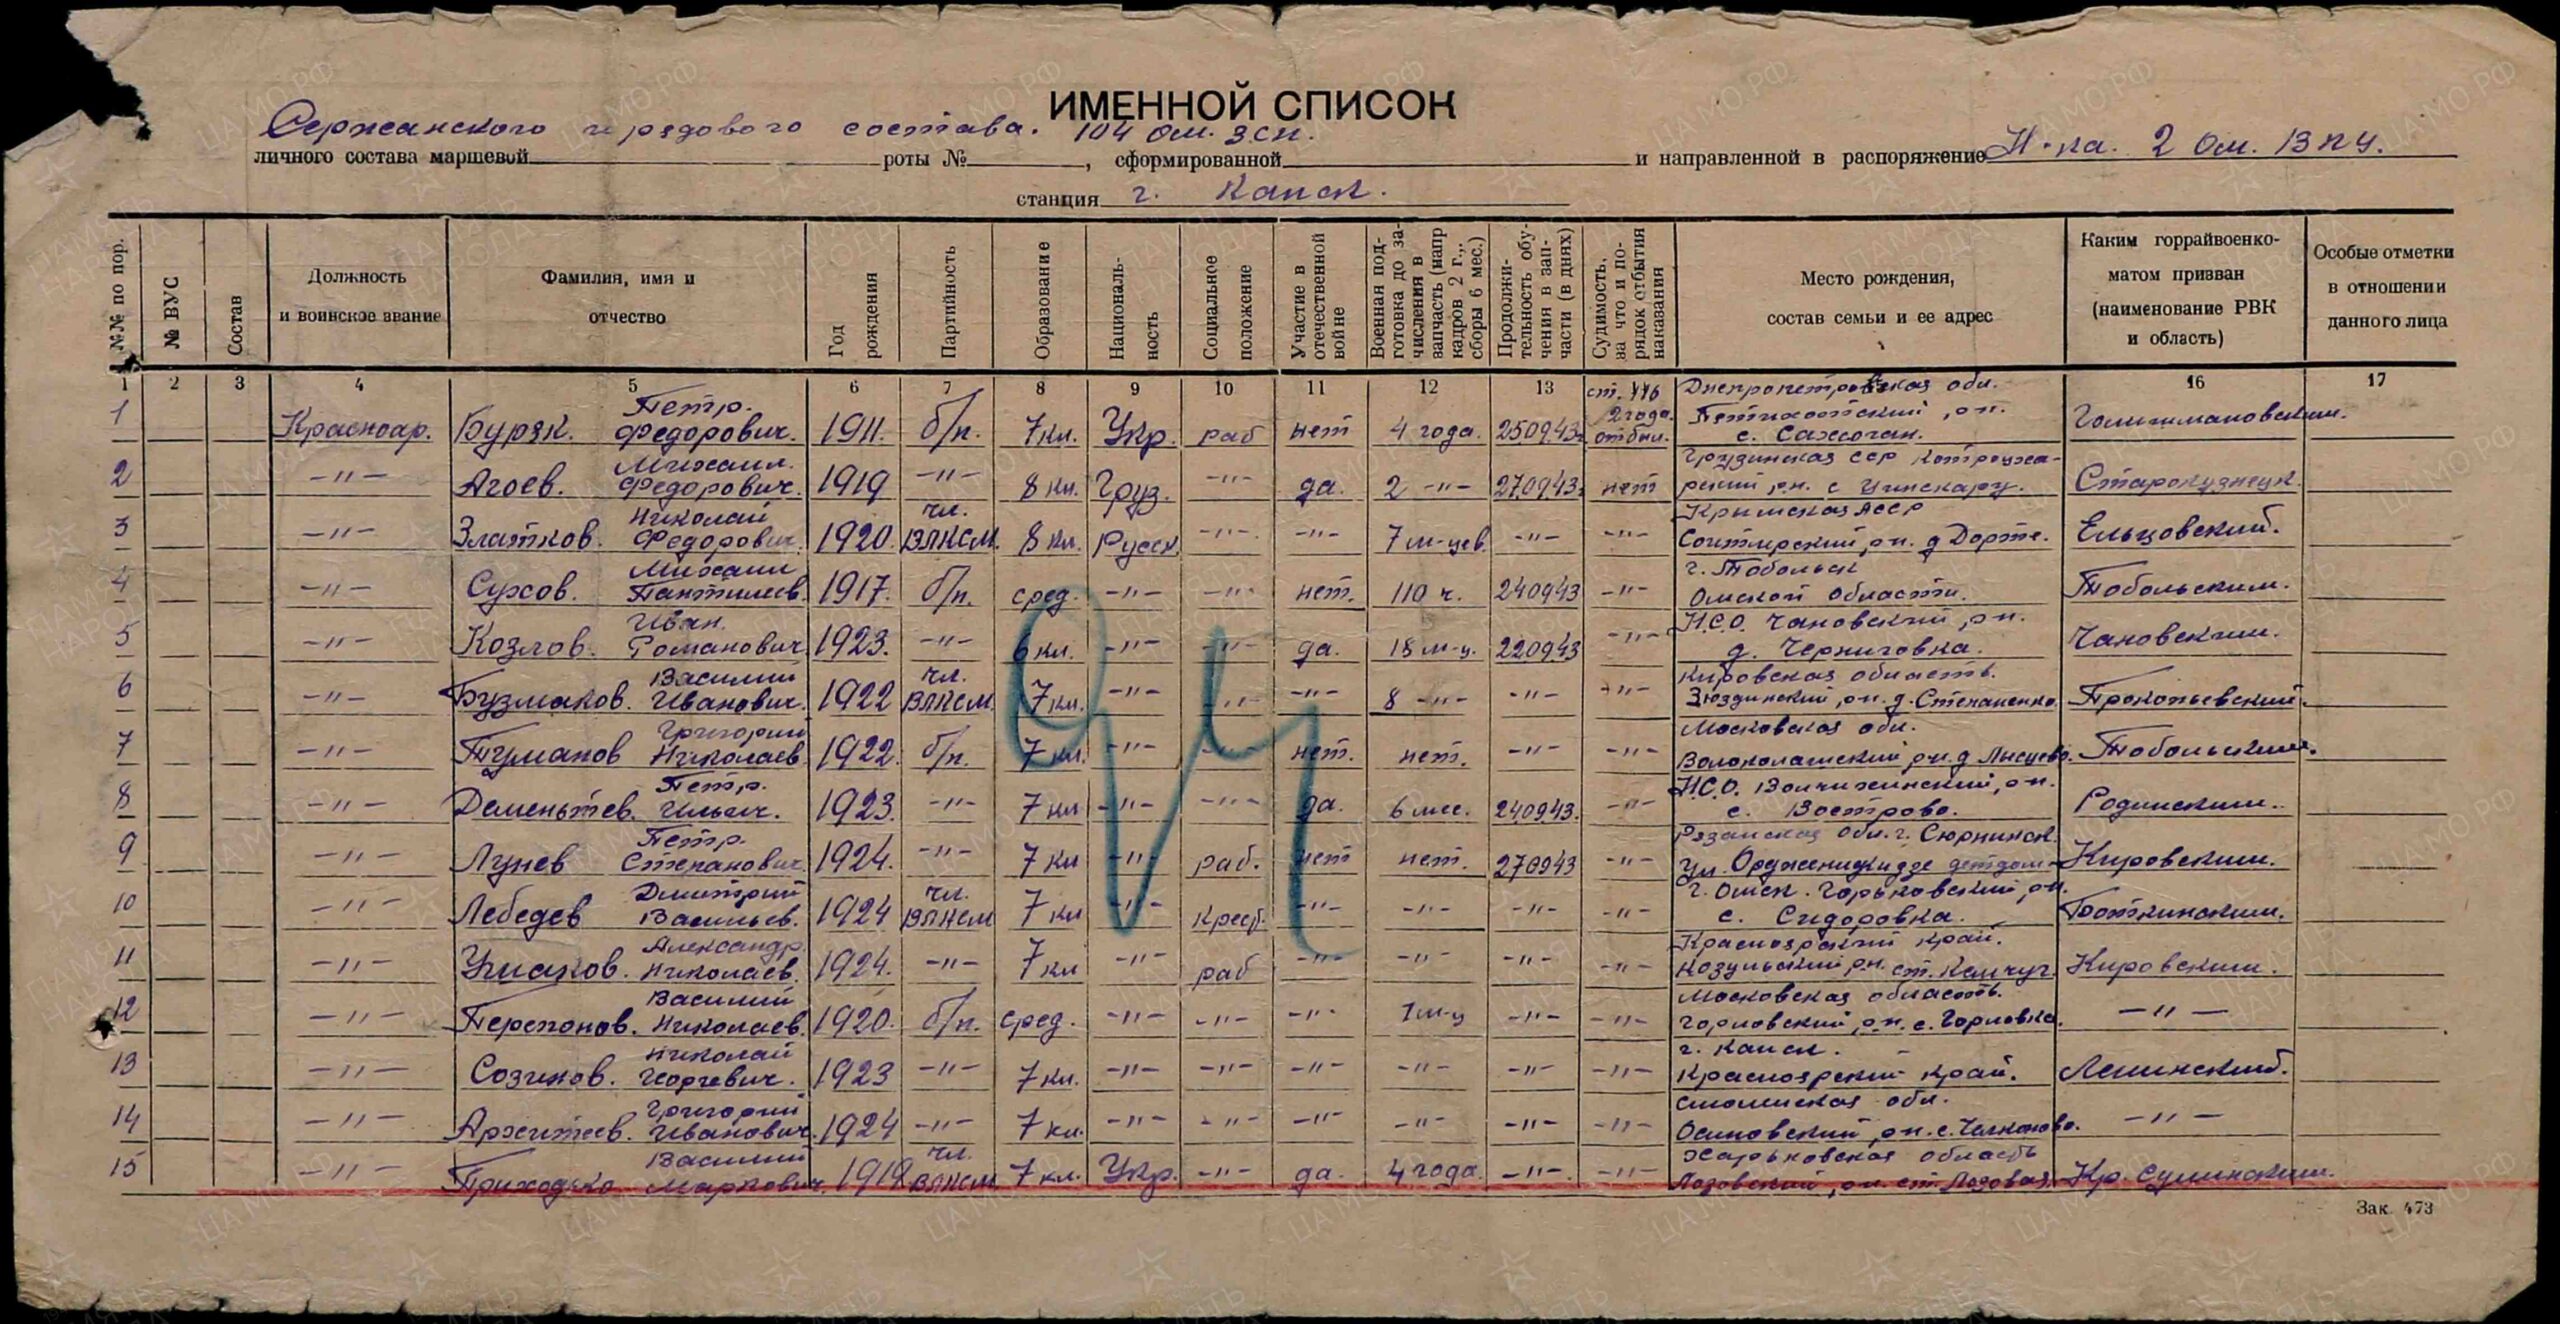 ИМЕННОЙ СПИСОК
Сержанского и рядового состава. 104 ом. зсп.
личного состава маршевой роты № , сформированной и направленной в распоряжение Н-ка. 2 Ом. ВПУ.
станция г. Канск.
№№ по пор. № ВУС Состав Должность и воинское звание Фамилия, имя и отчество Год рождения Партийность Образование Националь-ность Социальное положение Участие в отечественной войне Военная под-готовка до за-числения в запчасть (напр кадров 2 г., сборы 6 мес.) Продолжи-тельность обу-чения в зап-части (в днях) Судимость, за что и по-рядок отбытия наказания Место рождения, состав семьи и ее адрес Каким горрайвоенко-матом призван (наименование РВК и область) Особые отметки в отношении данного лица
1 2 3 4 5 6 7 8 9 10 11 12 13 16 17
1 Красноар. Буряк. Петр. Федорович. 1911. б/п. 7 кл. Укр. раб нет 4 года. 250943. 2 года. отбыл. Днепропетровская обл. Петихотский р-н. с. Саксоган.
2 —"— Агоев. Михаил. Федорович. 1919 —"— 8 кл. Груз. —"— да. 2 —"— 270943. нет Грузинская сср с Старокузнецк.
3 —"— Златков. Николай Федорович. 1920. чл. ВЛКСМ. 8 кл. Русск. —"— —"— 7 м-цев. —"— —"— Крымская АССР р-н. д Дорте. Ельцовский.
4 —"— Сухов. Михаил Пантилеев. 1917. б/п. сред. —"— —"— нет. 110 ч. 240943 —"— г. Тобольск Омской области. Тобольским.
5 —"— Козлов. Иван. Романович 1923. —"— 6 кл. —"— —"— да. 18 м-ц. 220943 —"— Н.С.О. Чановский р-н. д. Черниговка. Чановским.
6 —"— Бузмаков. Василий Иванович. 1922 чл. ВЛКСМ. 7 кл. —"— —"— —"— 8 —"— —"— —"— Кировская область. Зюздинский р-н. д. Степаненко. Прокопьевский.
7 —"— Туманов Григорий Николаев. 1922. б/п. 7 кл. —"— —"— нет. нет. —"— —"— Московская обл. Волоколамский р-н. д Лысцево. Тобольским.
8 —"— Дементьев. Петр. Ильич. 1923. —"— 7 кл —"— —"— да. 6 мес. 240943. —"— Н.С.О. Волчихинский р-н. с. Вострово. Родинским.
9 —"— Лунев Петр. Степанович. 1924. —"— 7 кл —"— раб. нет нет. 270943 —"— Рязанская обл. г. Ул. Орджоникидзе детдом Кировским.
10 —"— Лебедев Дмитрий Васильев. 1924 чл. ВЛКСМ 7 кл —"— крест. —"— —"— —"— —"— г. Омск. Горьковский р-н. с. Сидоровка. Боткинским.
11 —"— Ушаков. Александр. Николаев. 1924. —"— 7 кл —"— раб —"— —"— —"— —"— Красноярский край. Козульский р-н. ст. Кемчуг. Кировским.
12 —"— Перепонов. Василий Николаев. 1920. б/п. сред. —"— —"— —"— 7 м-ц —"— —"— Московская область. Горловский р-н. с. Горловка. —"—
13 —"— Созинов. Николай Георгевич. 1923 —"— 7 кл. —"— —"— —"— —"— —"— —"— г. Канск. Красноярский край. Ленинский.
14 —"— Архипеев. Григорий Иванович. 1924 —"— 7 кл. —"— —"— —"— —"— —"— —"— Смоленская обл. р-н. с. Челноково. —"—
15 —"— Приходько Василий Маркович. 1919 чл. ВЛКСМ 7 кл. Укр. —"— да. 4 года —"— —"— Харьковская область Лозовский р-н. ст. Лозовая. Кр. Сулинским.
Зак. 473